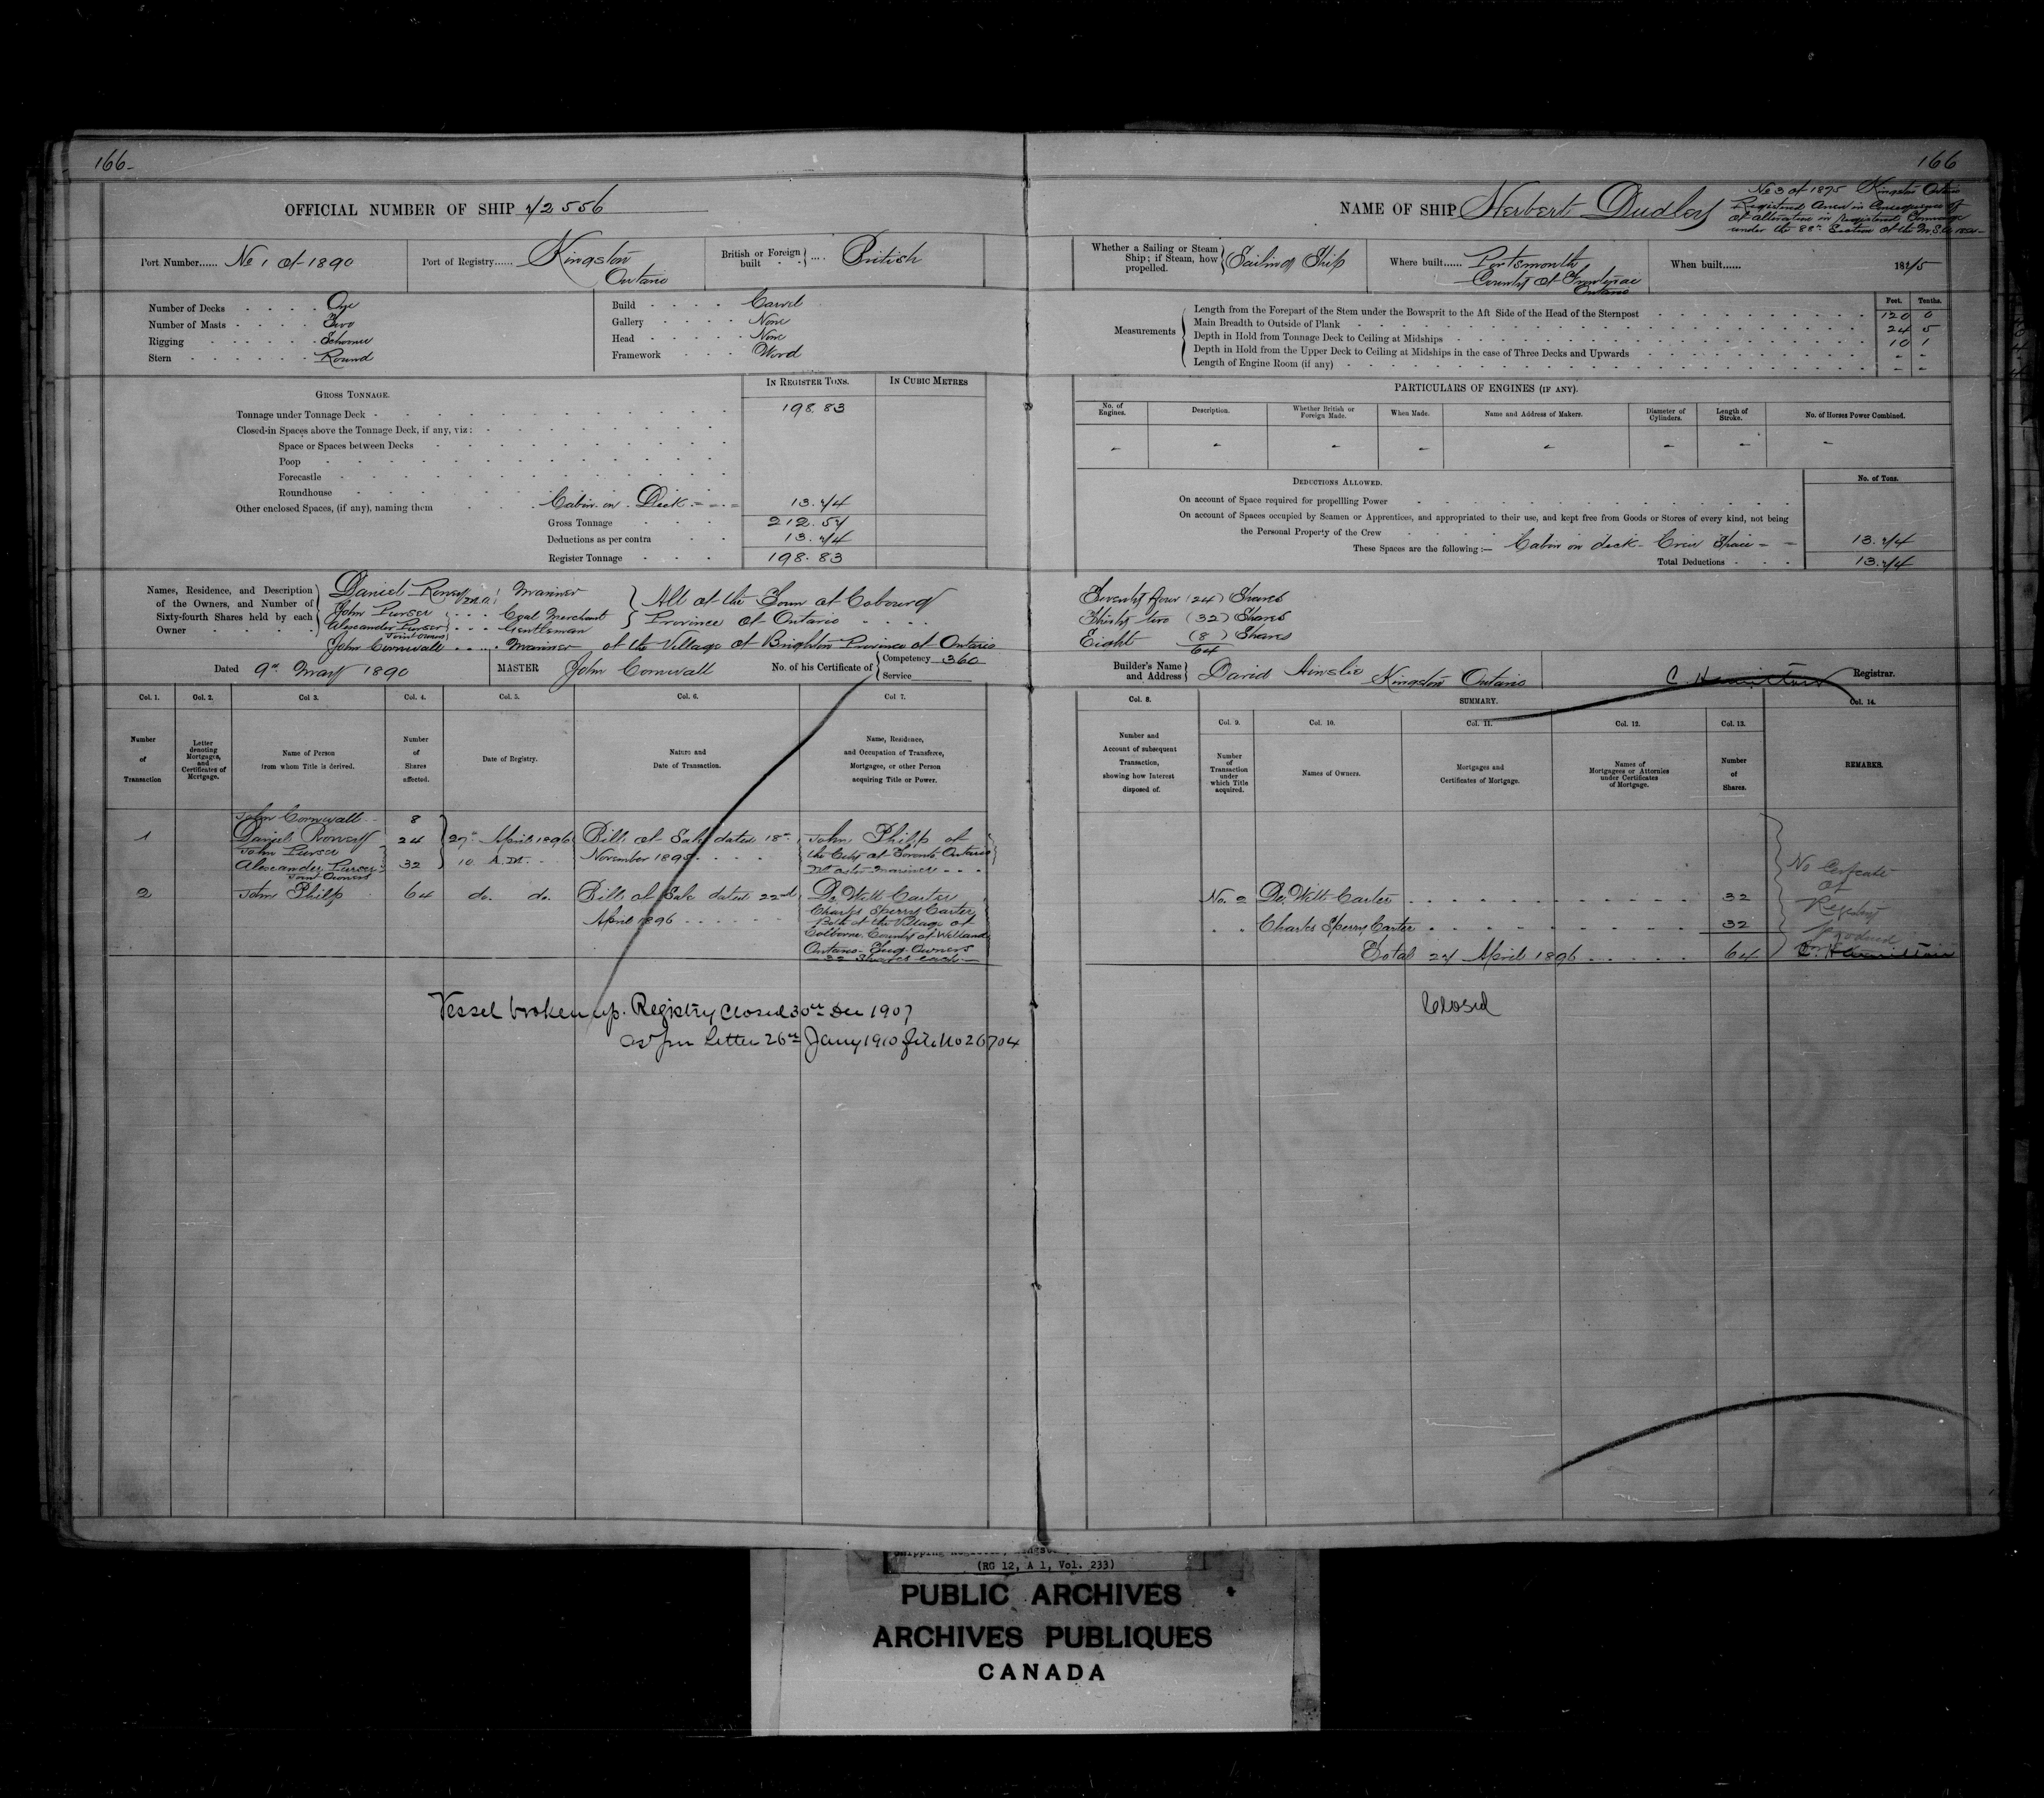 166-
OFFICIAL NUMBER OF SHIP 72556
Port Number...... No 1 of 1890
Port of Registry...... Kingston
Ontario
British or Foreign built .... British
Number of Decks One
Number of Masts Two
Rigging Schooner
Stern Round
Build Carvel
Gallery None
Head None
Framework Wood
GROSS TONNAGE.
IN REGISTER TONS.
IN CUBIC METRES
Tonnage under Tonnage Deck 198.83
Closed-in Spaces above the Tonnage Deck, if any, viz:
Space or Spaces between Decks
Poop
Forecastle
Roundhouse
Other enclosed Spaces, (if any), naming them Cabin on Deck 13.74
Gross Tonnage 212.57
Deductions as per contra 13.74
Register Tonnage 198.83
Names, Residence, and Description
of the Owners, and Number of
Sixty-fourth Shares held by each
Owner
Daniel Rooney Mariner
John Purser Coal Merchant
Alexander Purser Gentleman
Joint Owners
All of the Town of Cobourg
Province of Ontario
John Cornwall Mariner of the Village of Brighton Province of Ontario
Dated 9th May 1890
MASTER John Cornwall
No. of his Certificate of Competency 360
Service
Col. 1. Col. 2. Col 3. Col. 4. Col. 5. Col. 6. Col 7.
Number of Transaction
Letter denoting Mortgages, and Certificates of Mortgage.
Name of Person from whom Title is derived.
Number of Shares affected.
Date of Registry.
Nature and Date of Transaction.
Name, Residence, and Occupation of Transferee, Mortgagee, or other Person acquiring Title or Power.
John Cornwall 8
1 Daniel Rooney 24 27th April 1896 Bill of Sale dated 18th John Philp of
John Purser 10 A.M. November 1895 the City of Toronto Ontario
Alexander Purser 32 Master Mariner
Joint Owners
2 John Philp 64 do. do. Bill of Sale dated 22nd De Witt Carter
April 1896 Charles Sperry Carter
Both of the Village of
Colborne County of Welland
Ontario Tug Owners
32 Shares each
Vessel broken up. Registry Closed 30th Dec 1907
as per Letter 26th Jany 1910 file No 26704
166
NAME OF SHIP Herbert Dudley
No 3 of 1875 Kingston Ontario
Registered Anew in Consequence of
of alteration in Registered Tonnage
under the 88th Section of the M.S.A. 1854
Whether a Sailing or Steam Ship; if Steam, how propelled. Sailing Ship
Where built...... Portsmouth
County of Frontenac
Ontario
When built...... 1875
Measurements
Feet. Tenths.
Length from the Forepart of the Stem under the Bowsprit to the Aft Side of the Head of the Sternpost 120 0
Main Breadth to Outside of Plank 24 5
Depth in Hold from Tonnage Deck to Ceiling at Midships 10 1
Depth in Hold from the Upper Deck to Ceiling at Midships in the case of Three Decks and Upwards - -
Length of Engine Room (if any) - -
PARTICULARS OF ENGINES (IF ANY).
No. of Engines. Description. Whether British or Foreign Made. When Made. Name and Address of Makers. Diameter of Cylinders. Length of Stroke. No. of Horses Power Combined.
- - - - - - - -
DEDUCTIONS ALLOWED.
No. of Tons.
On account of Space required for propellling Power
On account of Spaces occupied by Seamen or Apprentices, and appropriated to their use, and kept free from Goods or Stores of every kind, not being
the Personal Property of the Crew
These Spaces are the following :— Cabin on deck - Crew Space 13.74
Total Deductions 13.74
Twenty four (24) Shares
Thirty two (32) Shares
Eight (8) Shares
64
Builder's Name and Address David Ainslie Kingston Ontario
C. Hamilton Registrar.
Col. 8. SUMMARY. Col. 14.
Col. 9. Col. 10. Col. 11. Col. 12. Col. 13.
Number and Account of subsequent Transaction, showing how Interest disposed of.
Number of Transaction under which Title acquired.
Names of Owners.
Mortgages and Certificates of Mortgage.
Names of Mortgagees or Attornies under Certificates of Mortgage.
Number of Shares.
REMARKS.
No. 2 De Witt Carter 32
Charles Sperry Carter 32
Total 27 April 1896 64
No Certificate
of
Registry
produced
C. Hamilton
Closed
(RG 12, A 1, Vol. 233)
PUBLIC ARCHIVES
ARCHIVES PUBLIQUES
CANADA